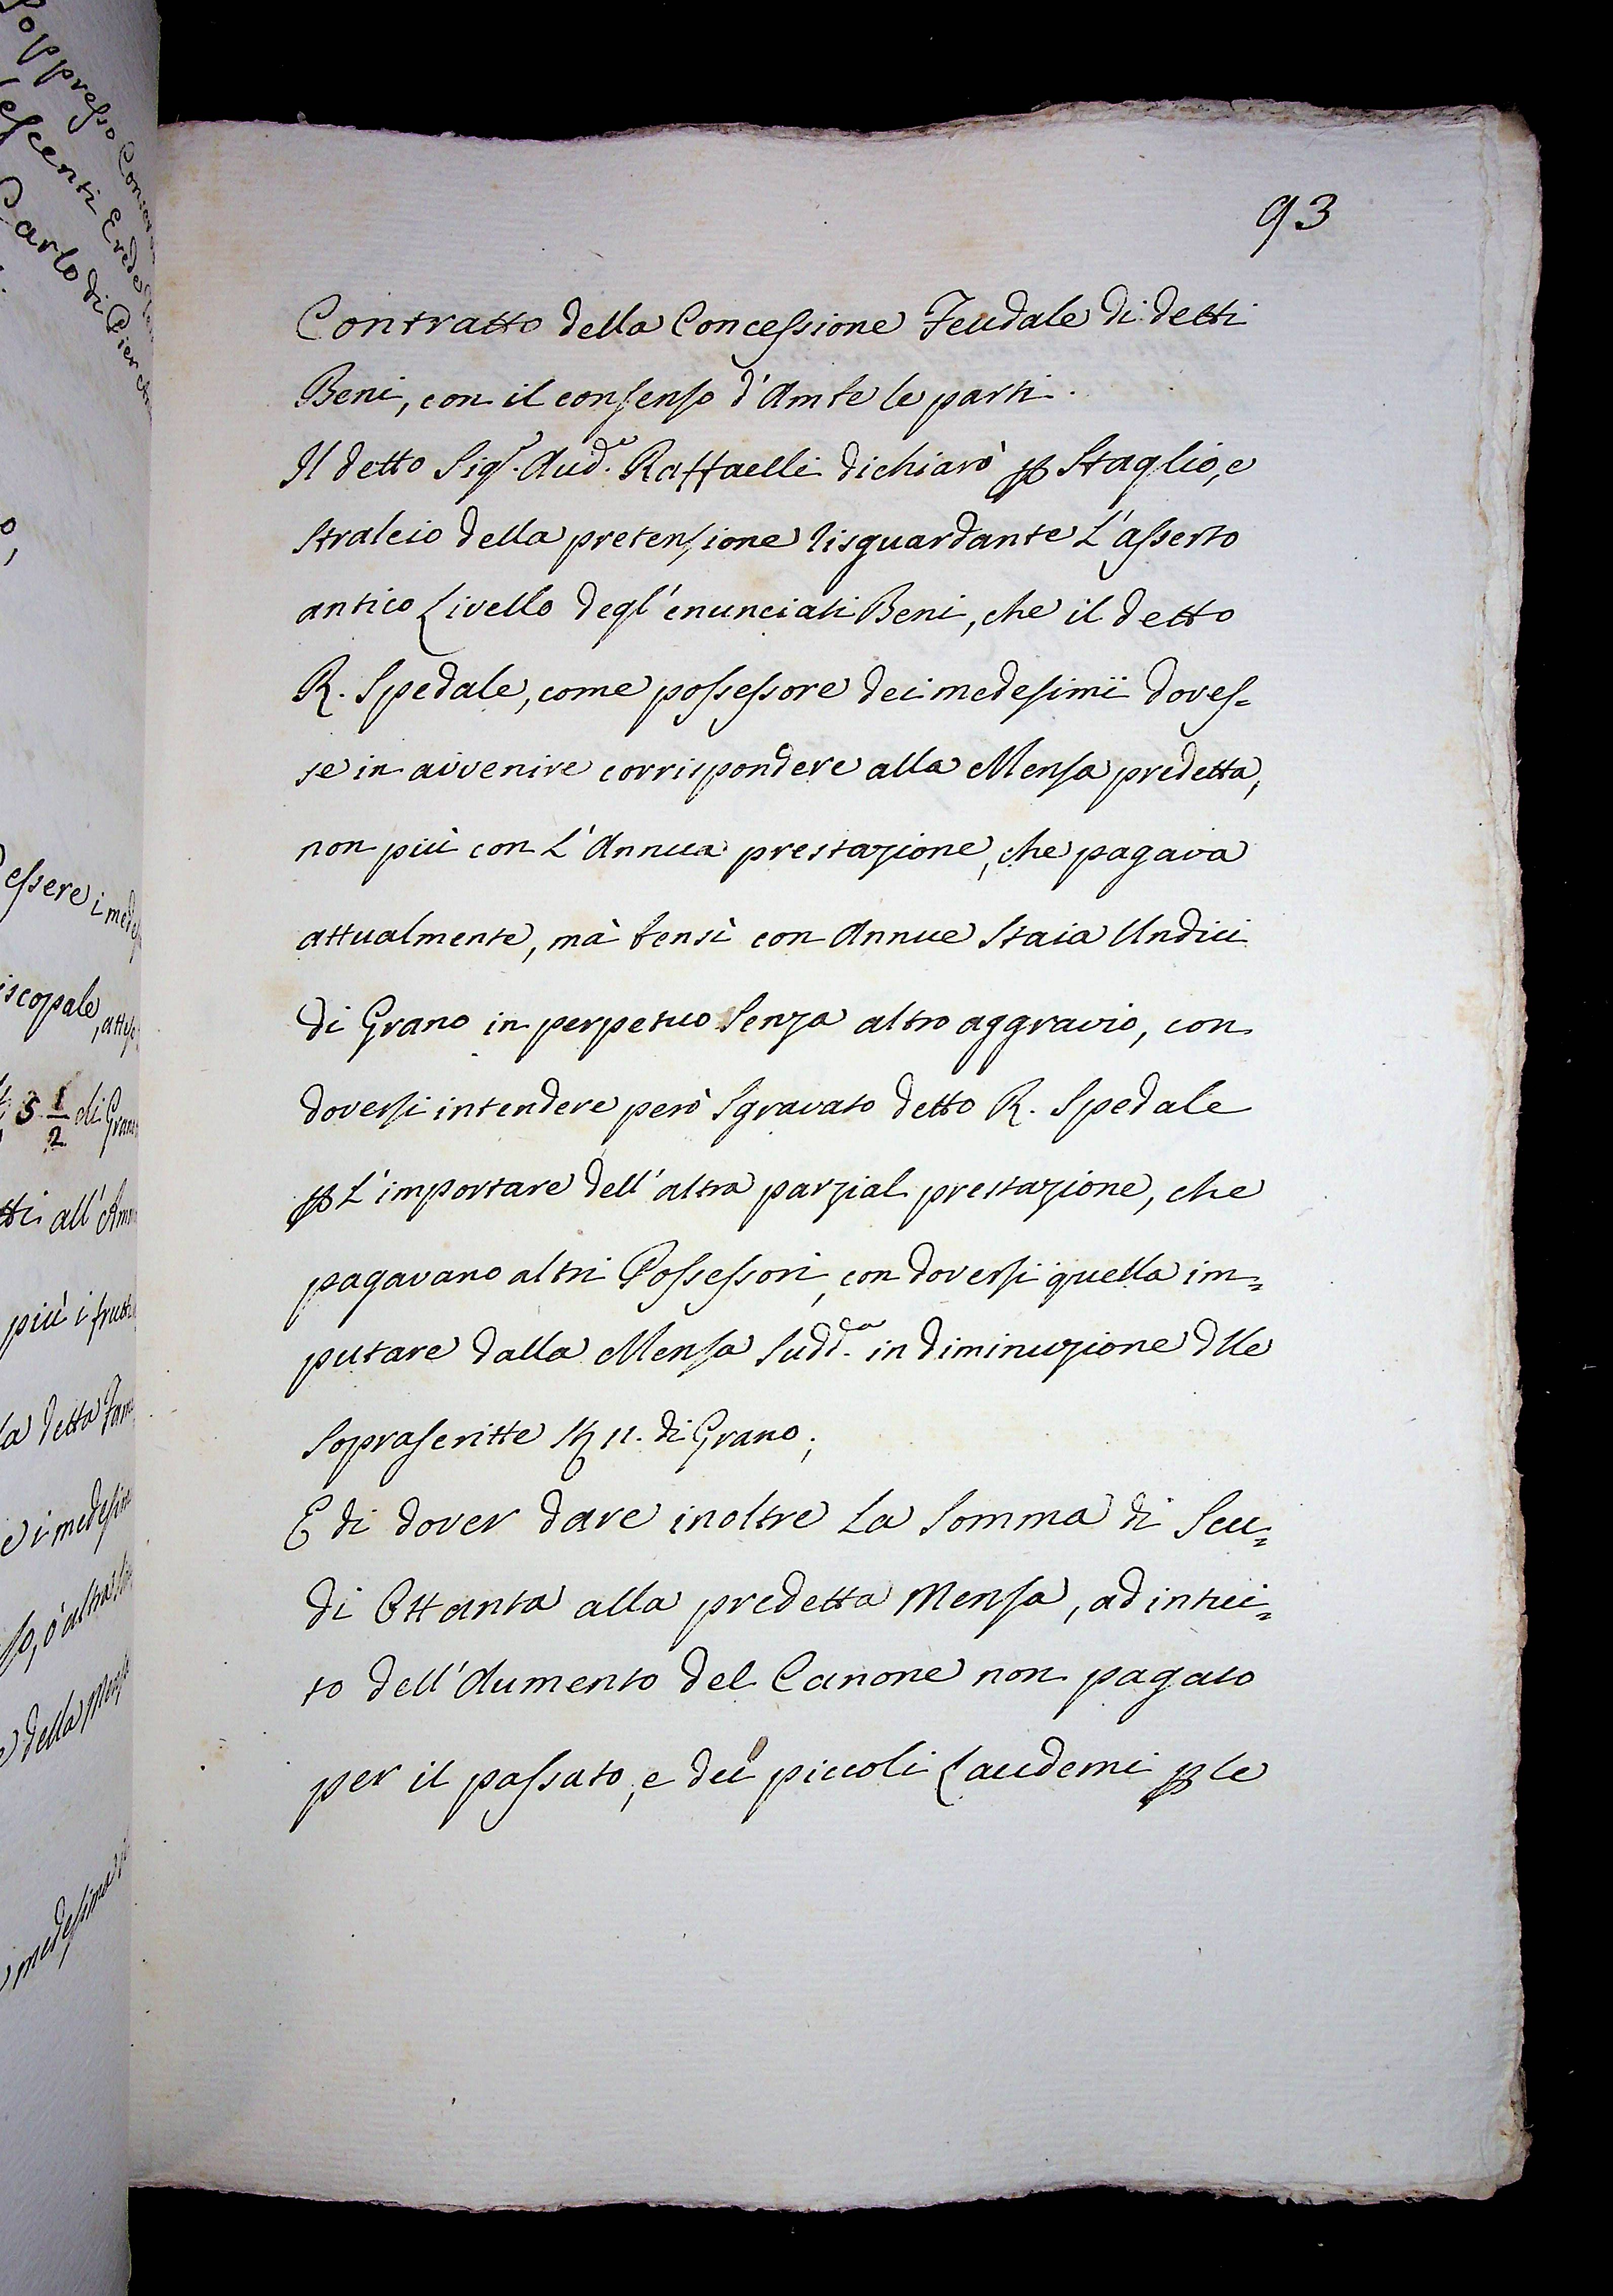 93
Contratto della Concessione Feudale di detti
Beni, con il consenso d'Ambe le parti.
Il detto Sig.r Aud.e Raffaelli dichiarò p Staglio, e
stralcio della pretensione risguardante L'asserto
antico Livello degl'enunciati Beni, che il detto
R. Spedale, come possessore dei medesimi doves=
se in avvenire corrispondere alla Mensa predetta,
non più con L'Annua prestazione, che pagava
attualmente, mà bensì con Annue Staia Undici
di Grano in perpetuo Senza altro aggravio, con
doversi intendere però Sgravato detto R. Spedale
p L'importare dell'altra parzial prestazione, che
pagavano altri Possessori, con doversi quella im=
putare dalla Mensa Sudd.a in diminuzione dlle
Soprascritte St 11. di Grano;
E di dover dare inoltre La Somma di Scu=
di Ottanta alla predetta Mensa, ad intui=
to dell'Aumento del Canone non pagato
per il passato, e dei piccoli Laudemi p le